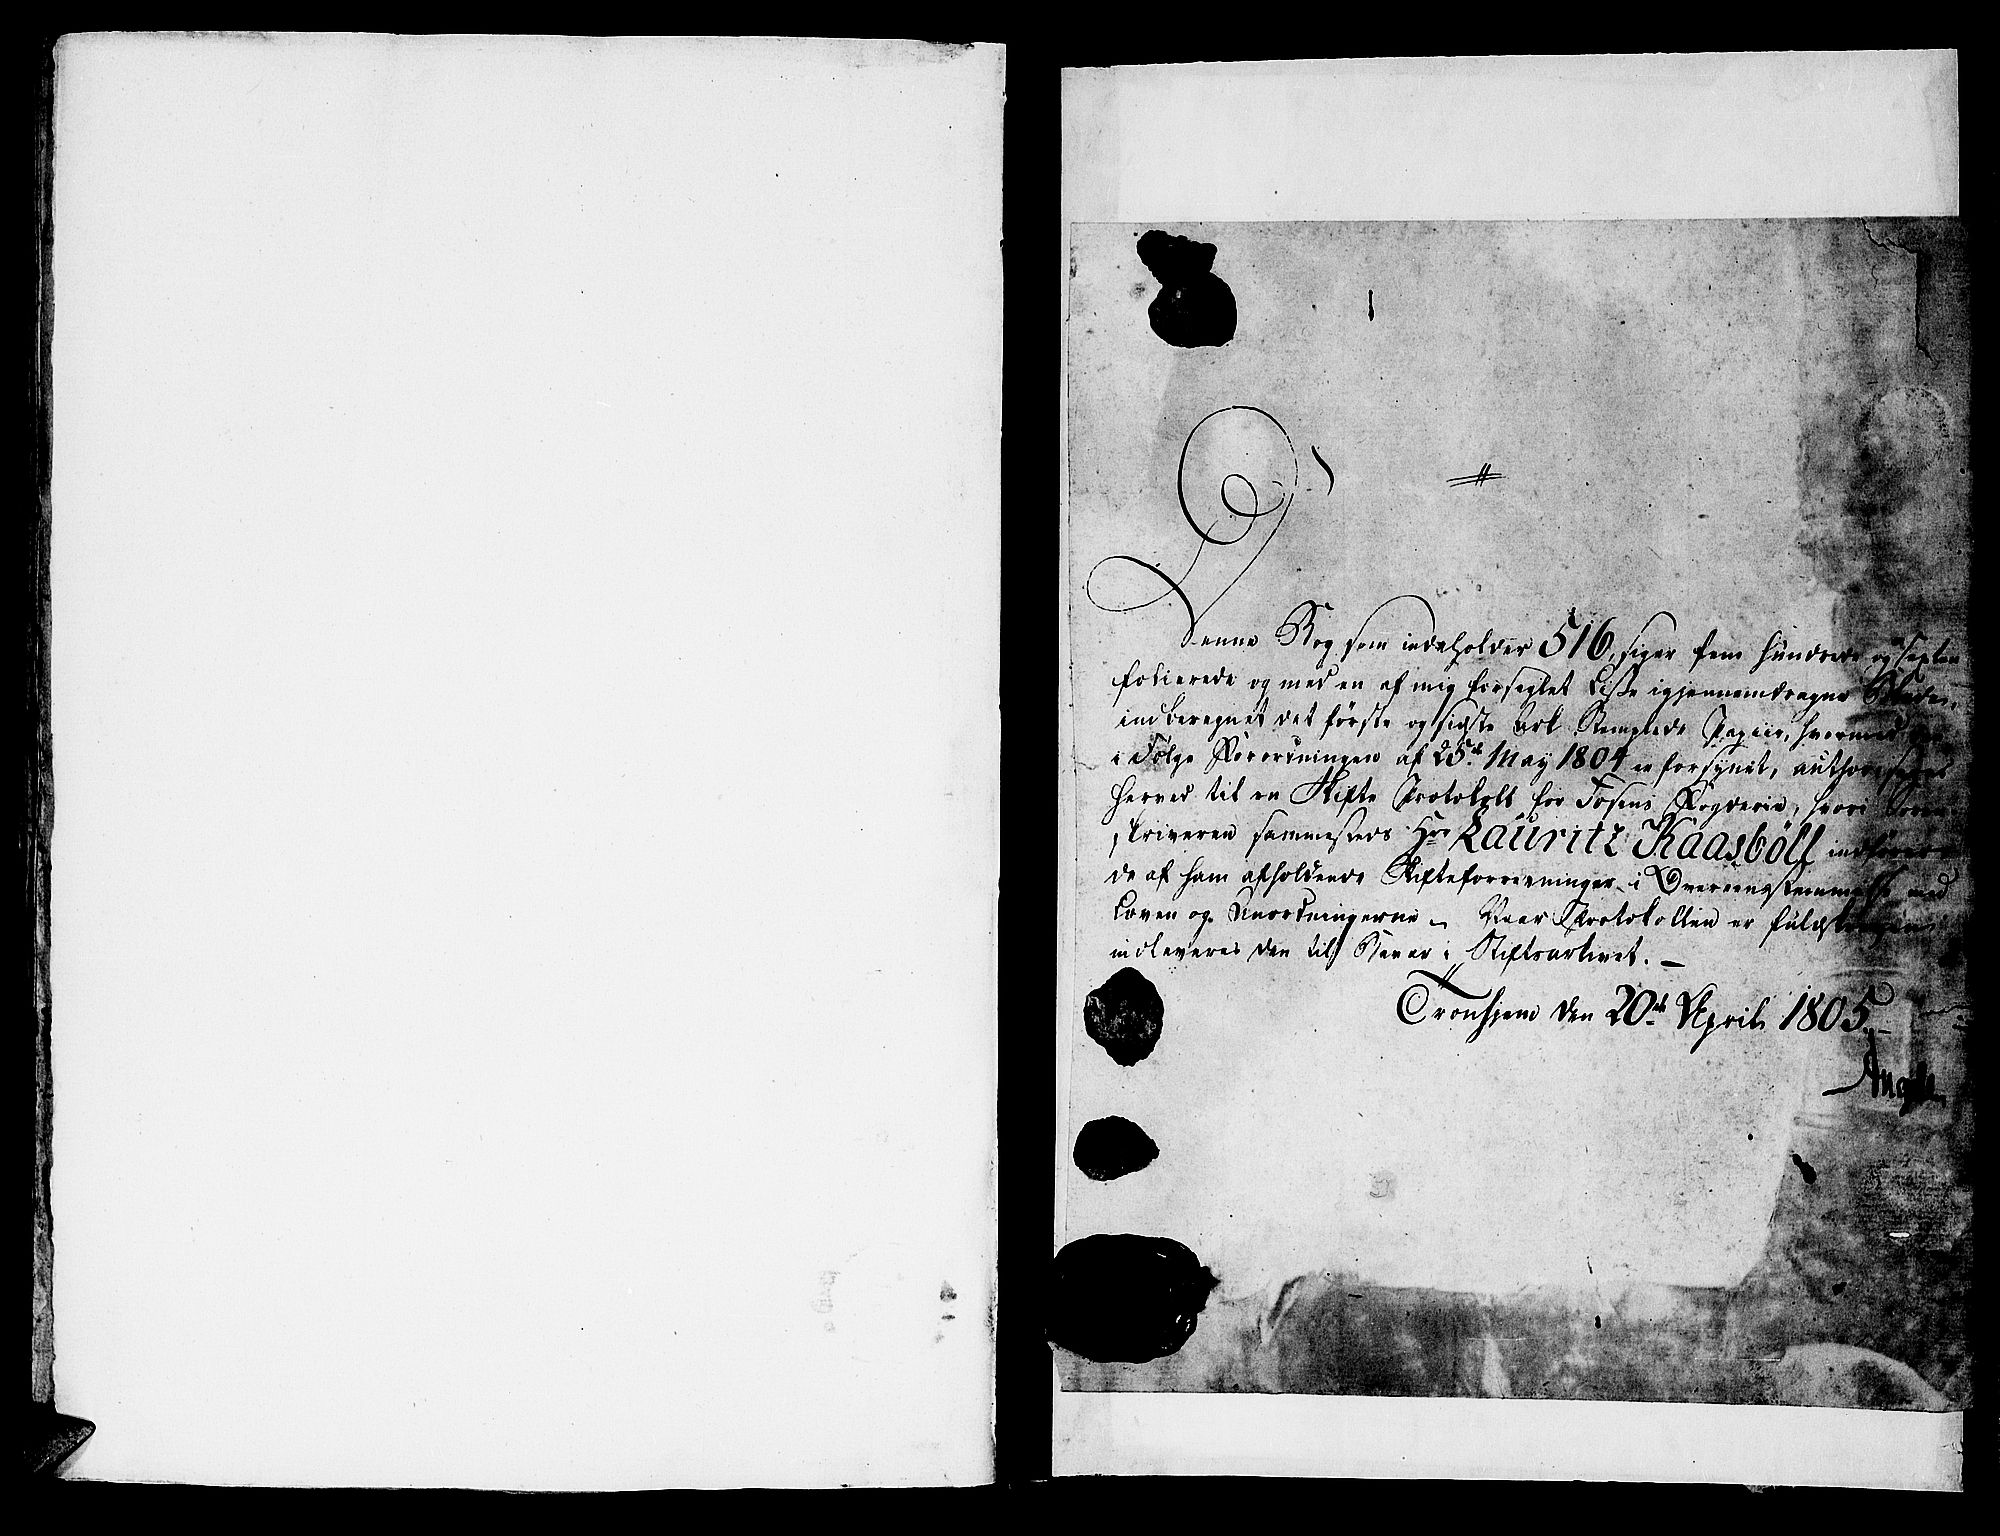 Denne Bog som indeholder 516, siger fem hundrede og sexten
folierede og med en af mig forseglet Lisse igjennemdragne Blade,
indberegnet det første og sidste Ark Stemplede Papiir, hvormed den
i Følge Forordningen af 25de May 1804 er forsynet, authoriseres
herved til en Skifte Protokoll for Fosens Fogderie, hvori Soren
skriveren sammesteds Hr Lauritz Kaasböll indförer
de af ham afholdende Skifteforretninger i Overeensstemmelse med
Loven og Anordningerne. Naar Protokollen er fuldskreven
indleveres den til Bevar i Stiftsarkivet. —
Tronhjem den 20de April 1805.